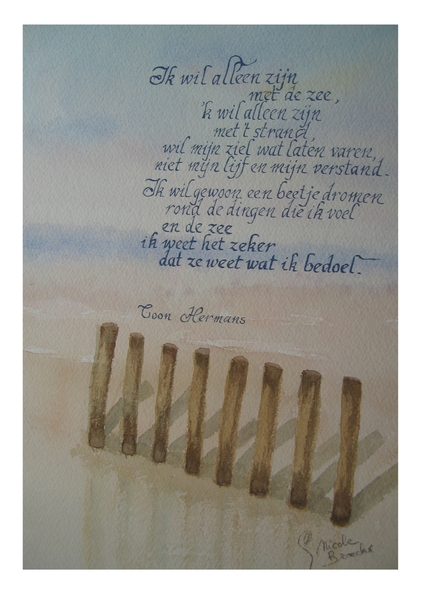 Ik wil alleen zijn
met de zee,
'k wil alleen zijn
met 't strand,
wil mijn ziel wat laten varen,
niet mijn lijf en mijn verstand.
Ik wil gewoon een beetje dromen
rond de dingen die ik voel
en de zee
ik weet het zeker
dat ze weet wat ik bedoel.
Toon Hermans
Nicole